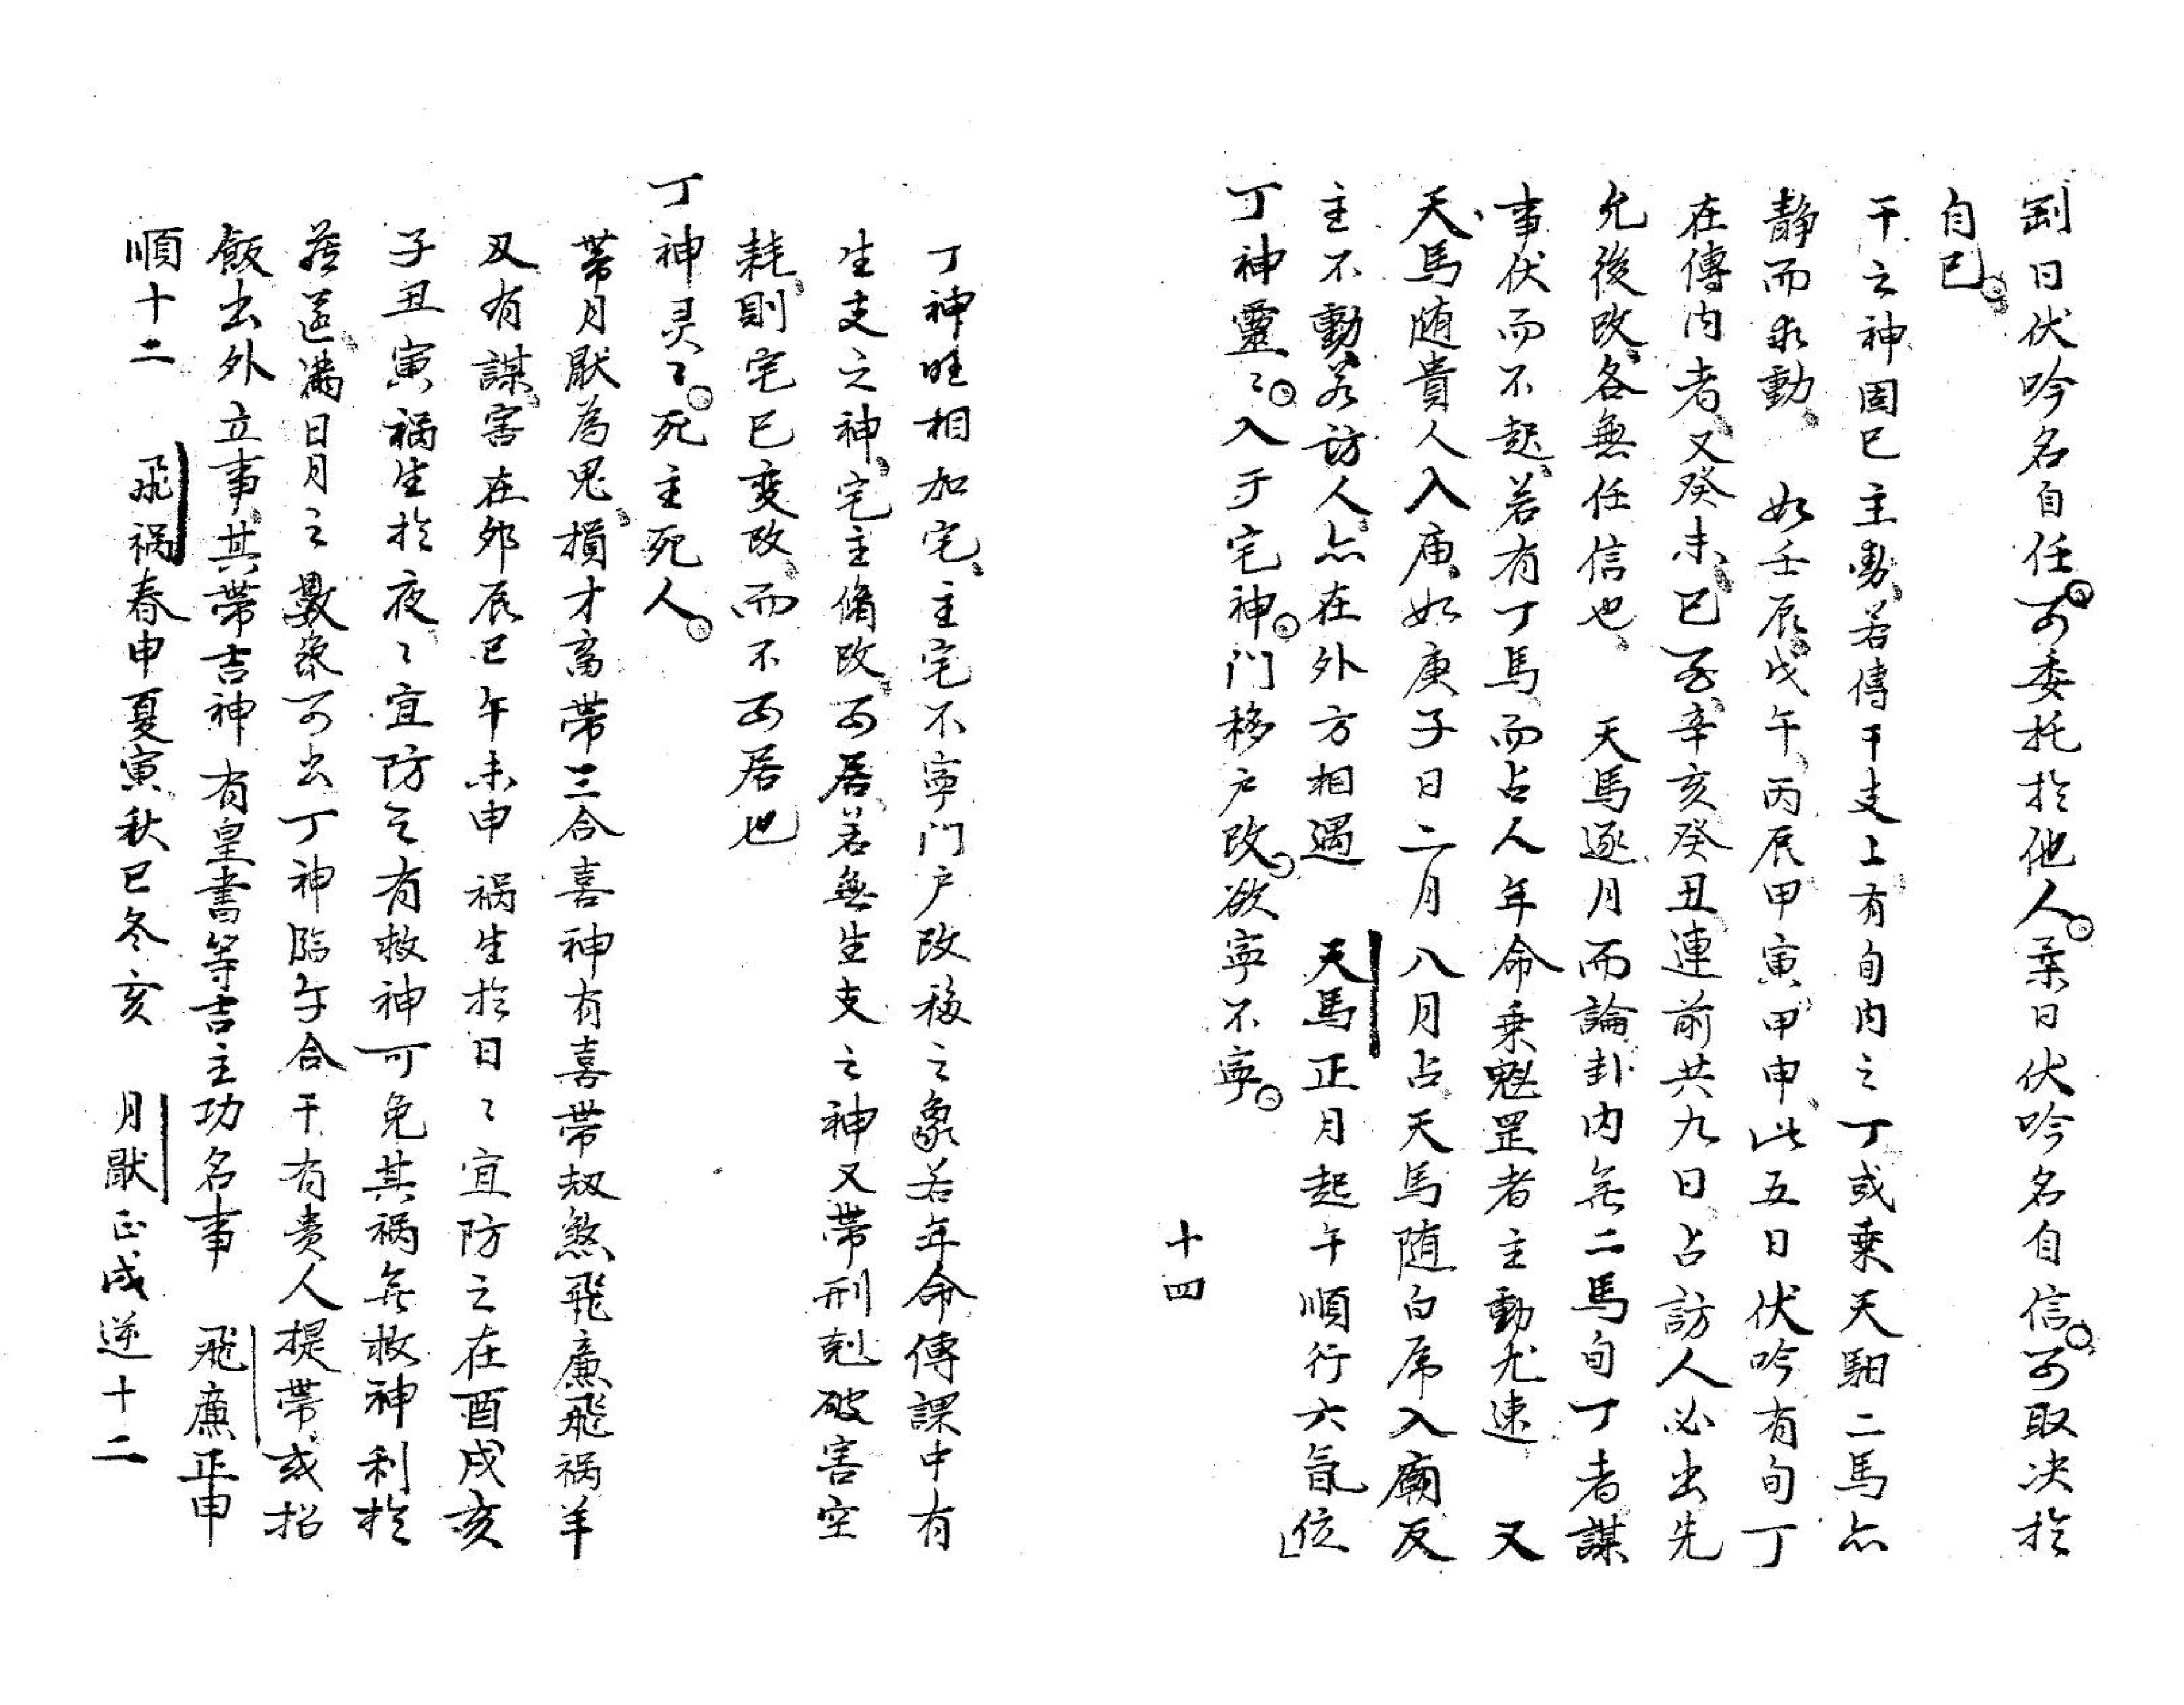 剛日伏吟名自任可委托於他人柔日伏吟名自信可取决於
自已
干之神固已主動若傳干支上有旬内之丁或乗天馹二馬亦
静而求動如壬辰戊午丙辰甲寅甲申此五日伏吟有旬丁
在傳内者又癸未已亥辛亥癸丑連前共九日占訪人必出先
允後改各無任信也天馬逐月而論卦内無二馬旬丁者謀
事伏而不起若有丁馬而占人年命乗魁罡者主動尤速又
天馬随貴人入庙如庚子日二月八月占天馬随白虎入廟反
主不動若訪人亦在外方相遇天馬正月起午順行六氣位
丁神靈〻入于宅神门移户改欲寧不寧
十四
丁神旺相加宅主宅不寧门户改移之象若年命傳課中有
生支之神宅主脩改可居若無生支之神又帶刑剋破害空
耗則宅已变改而不可居也
丁神灵〻死主死人
帶月厭為鬼損才畜帶三合喜神有喜帶刼煞飛廉飛禍羊
刄有謀害在卯辰巳午未申禍生於日〻宜防之在酉戌亥
子丑寅禍生於夜〻宜防之有救神可免其禍無救神利於
滿日月之數象可出丁神臨午合干有贵人提帶或招
飯出外立事其帶吉神有皇書等吉主功名事飛廉正申
順十二飛禍春申夏寅秋巳冬亥月厭正戌逆十二